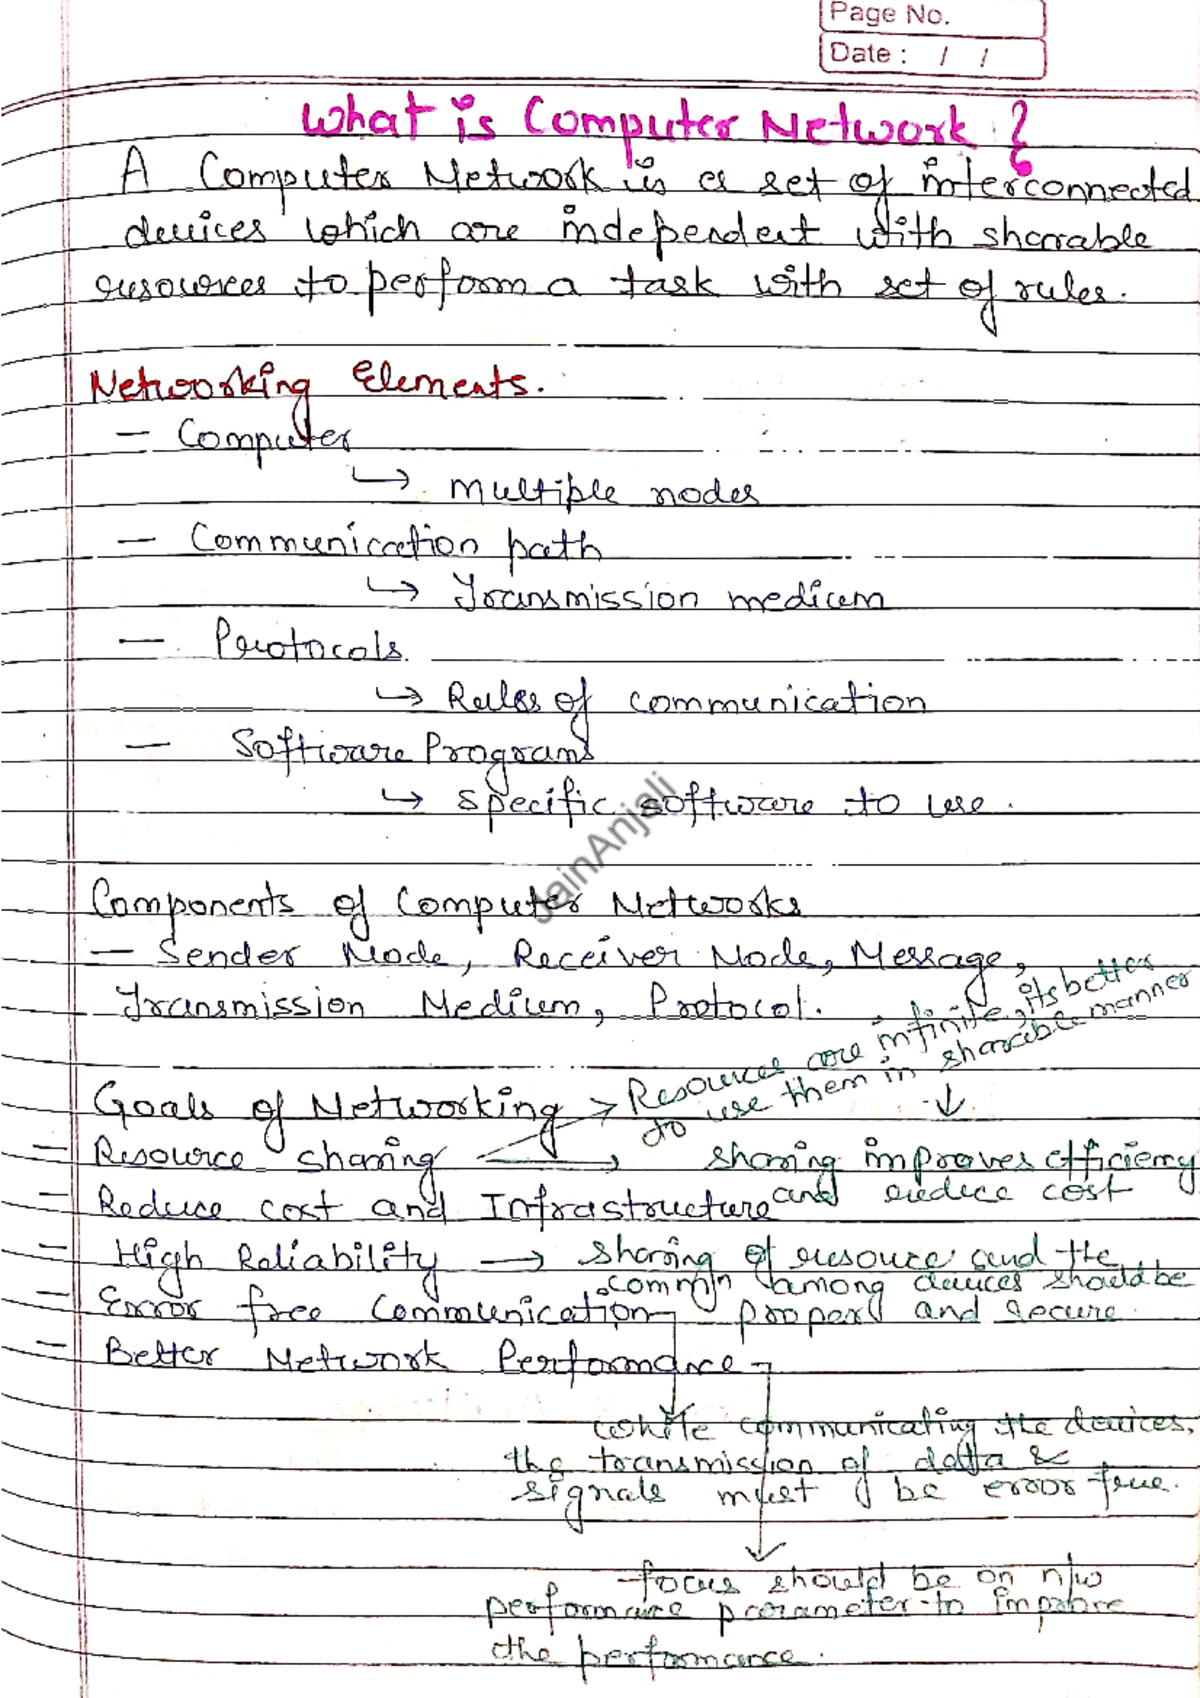 Page No.
Date : / /
What is Computer Network ?
A Computer Network is a set of interconnected
devices which are independent with sharable
resources to perform a task with set of rules.
Networking Elements.
- Computer
↳ multiple nodes
- Communication path
↳ Transmission medium
- Protocols
↳ Rules of communication
- Software Programs
↳ specific software to use.
JainAnjali
Components of Computer Networks
- Sender Node, Receiver Node, Message,
Transmission Medium, Protocol.
Goals of Networking
→ Resources are infinite, its better
to use them in sharable manner
↓
- Resource sharing → sharing improves efficiency
and reduce cost
- Reduce cost and Infrastructure
- High Reliability → sharing of resource and the
commn among devices should be
proper and secure.
- Error free Communication
- Better Network Performance
While communicating the devices,
the transmission of data &
signals must be error free.
focus should be on n/w
performance parameter to improve
the performance.